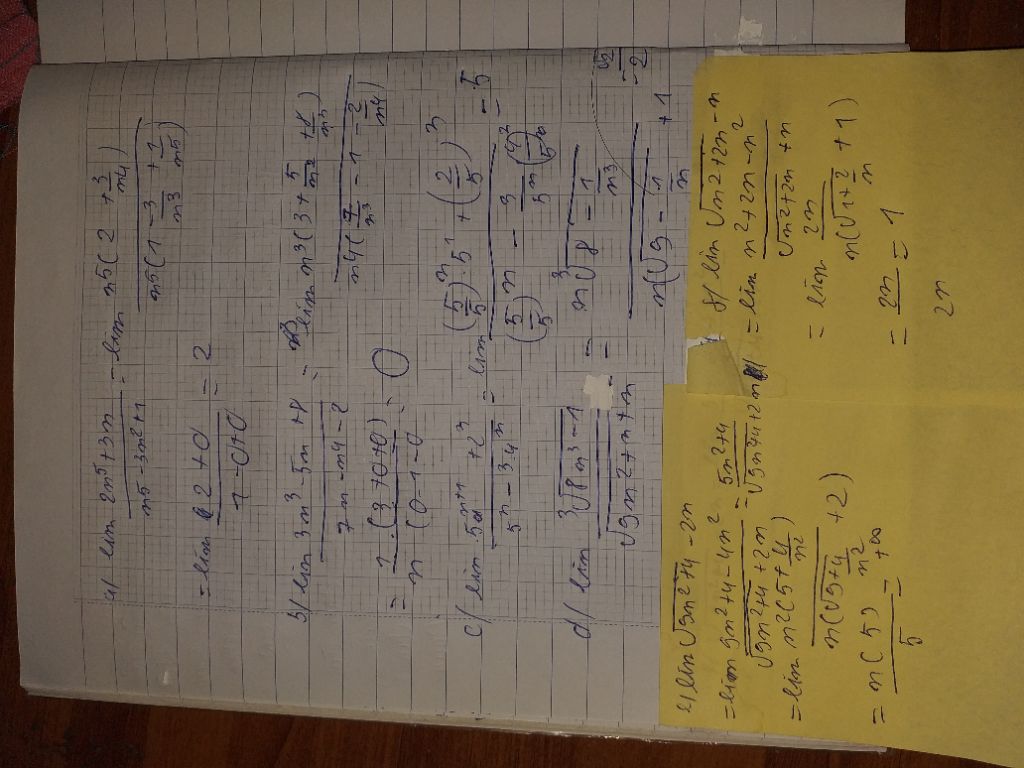 a) lim 2n^5+3n / n^5-3n^2+1 = lim n^5(2 + 3/n^4) / n^5(1 - 3/n^3 + 1/n^5)
= lim (2+0 / 1-0+0 = 2
b) lim 3n^3-5n+8 / 7n-n^4-2 = lim n^3(3+ 5/n^2 + 8/n^3) / n^4(7/n^3 - 1 - 2/n^4)
= 1/n · (3+0+0) / (0-1-0 = 0
c) lim 5^{n+1} + 2^n / 5^n - 3·4^n = lim (5/5)^n · 5^1 + (2/5)^n / (5/5)^n - 3 (4/5)^n = 5
d) lim ∛8n^3-1 / √9n^2+n+n = n ∛8 - 1/n^3 / n(√9 - 1/n +1
e) lim √9n^2+4 - 2n
= lim 9n^2+4-4n^2 / √9n^2+4+2n = 5n^2+4 / √9n^2+4+2n
= lim n^2(5+ 4/n^2) / n(√9+ 4/n^2 +2)
= n(5) / 5 = +∞
f) lim √n^2+2n - n
= lim n^2+2n-n^2 / √n^2+2n + n
= lim 2n / n(√1+ 2/n +1)
= 2n / 2n = 1